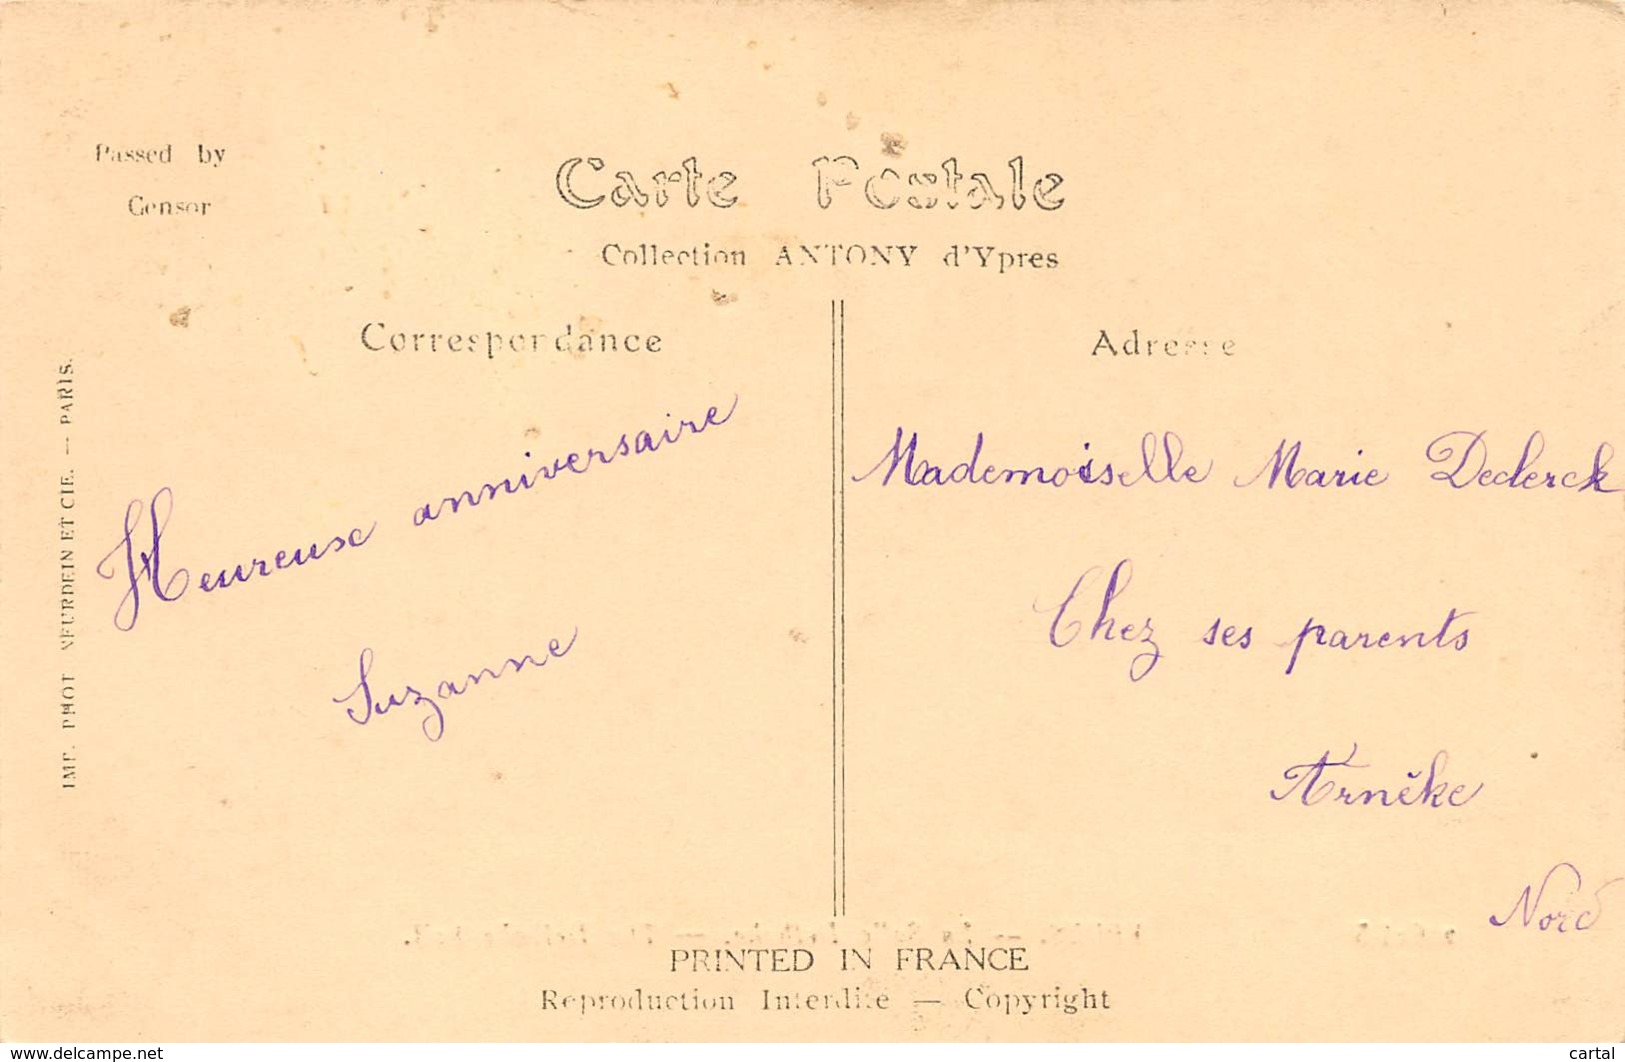 Passed by
Censor
Carte Postale
Collection ANTONY d'Ypres
Correspondance
Adresse
IMP. PHOT NEURDEIN ET CIE. — PARIS.
Heureuse anniversaire
Suzanne
Mademoiselle Marie Declerck
Chez ses parents
Arnèke
Nord
PRINTED IN FRANCE
Reproduction Interdite — Copyright
www.delcampe.net
cartal